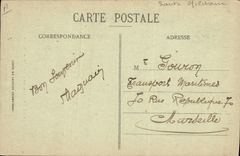 CARTE POSTALE
CORRESPONDANCE
ADRESSE
Bon Souvenir
Mr Gouron
Transport Maritimes
70 Rue République 70
Marseille